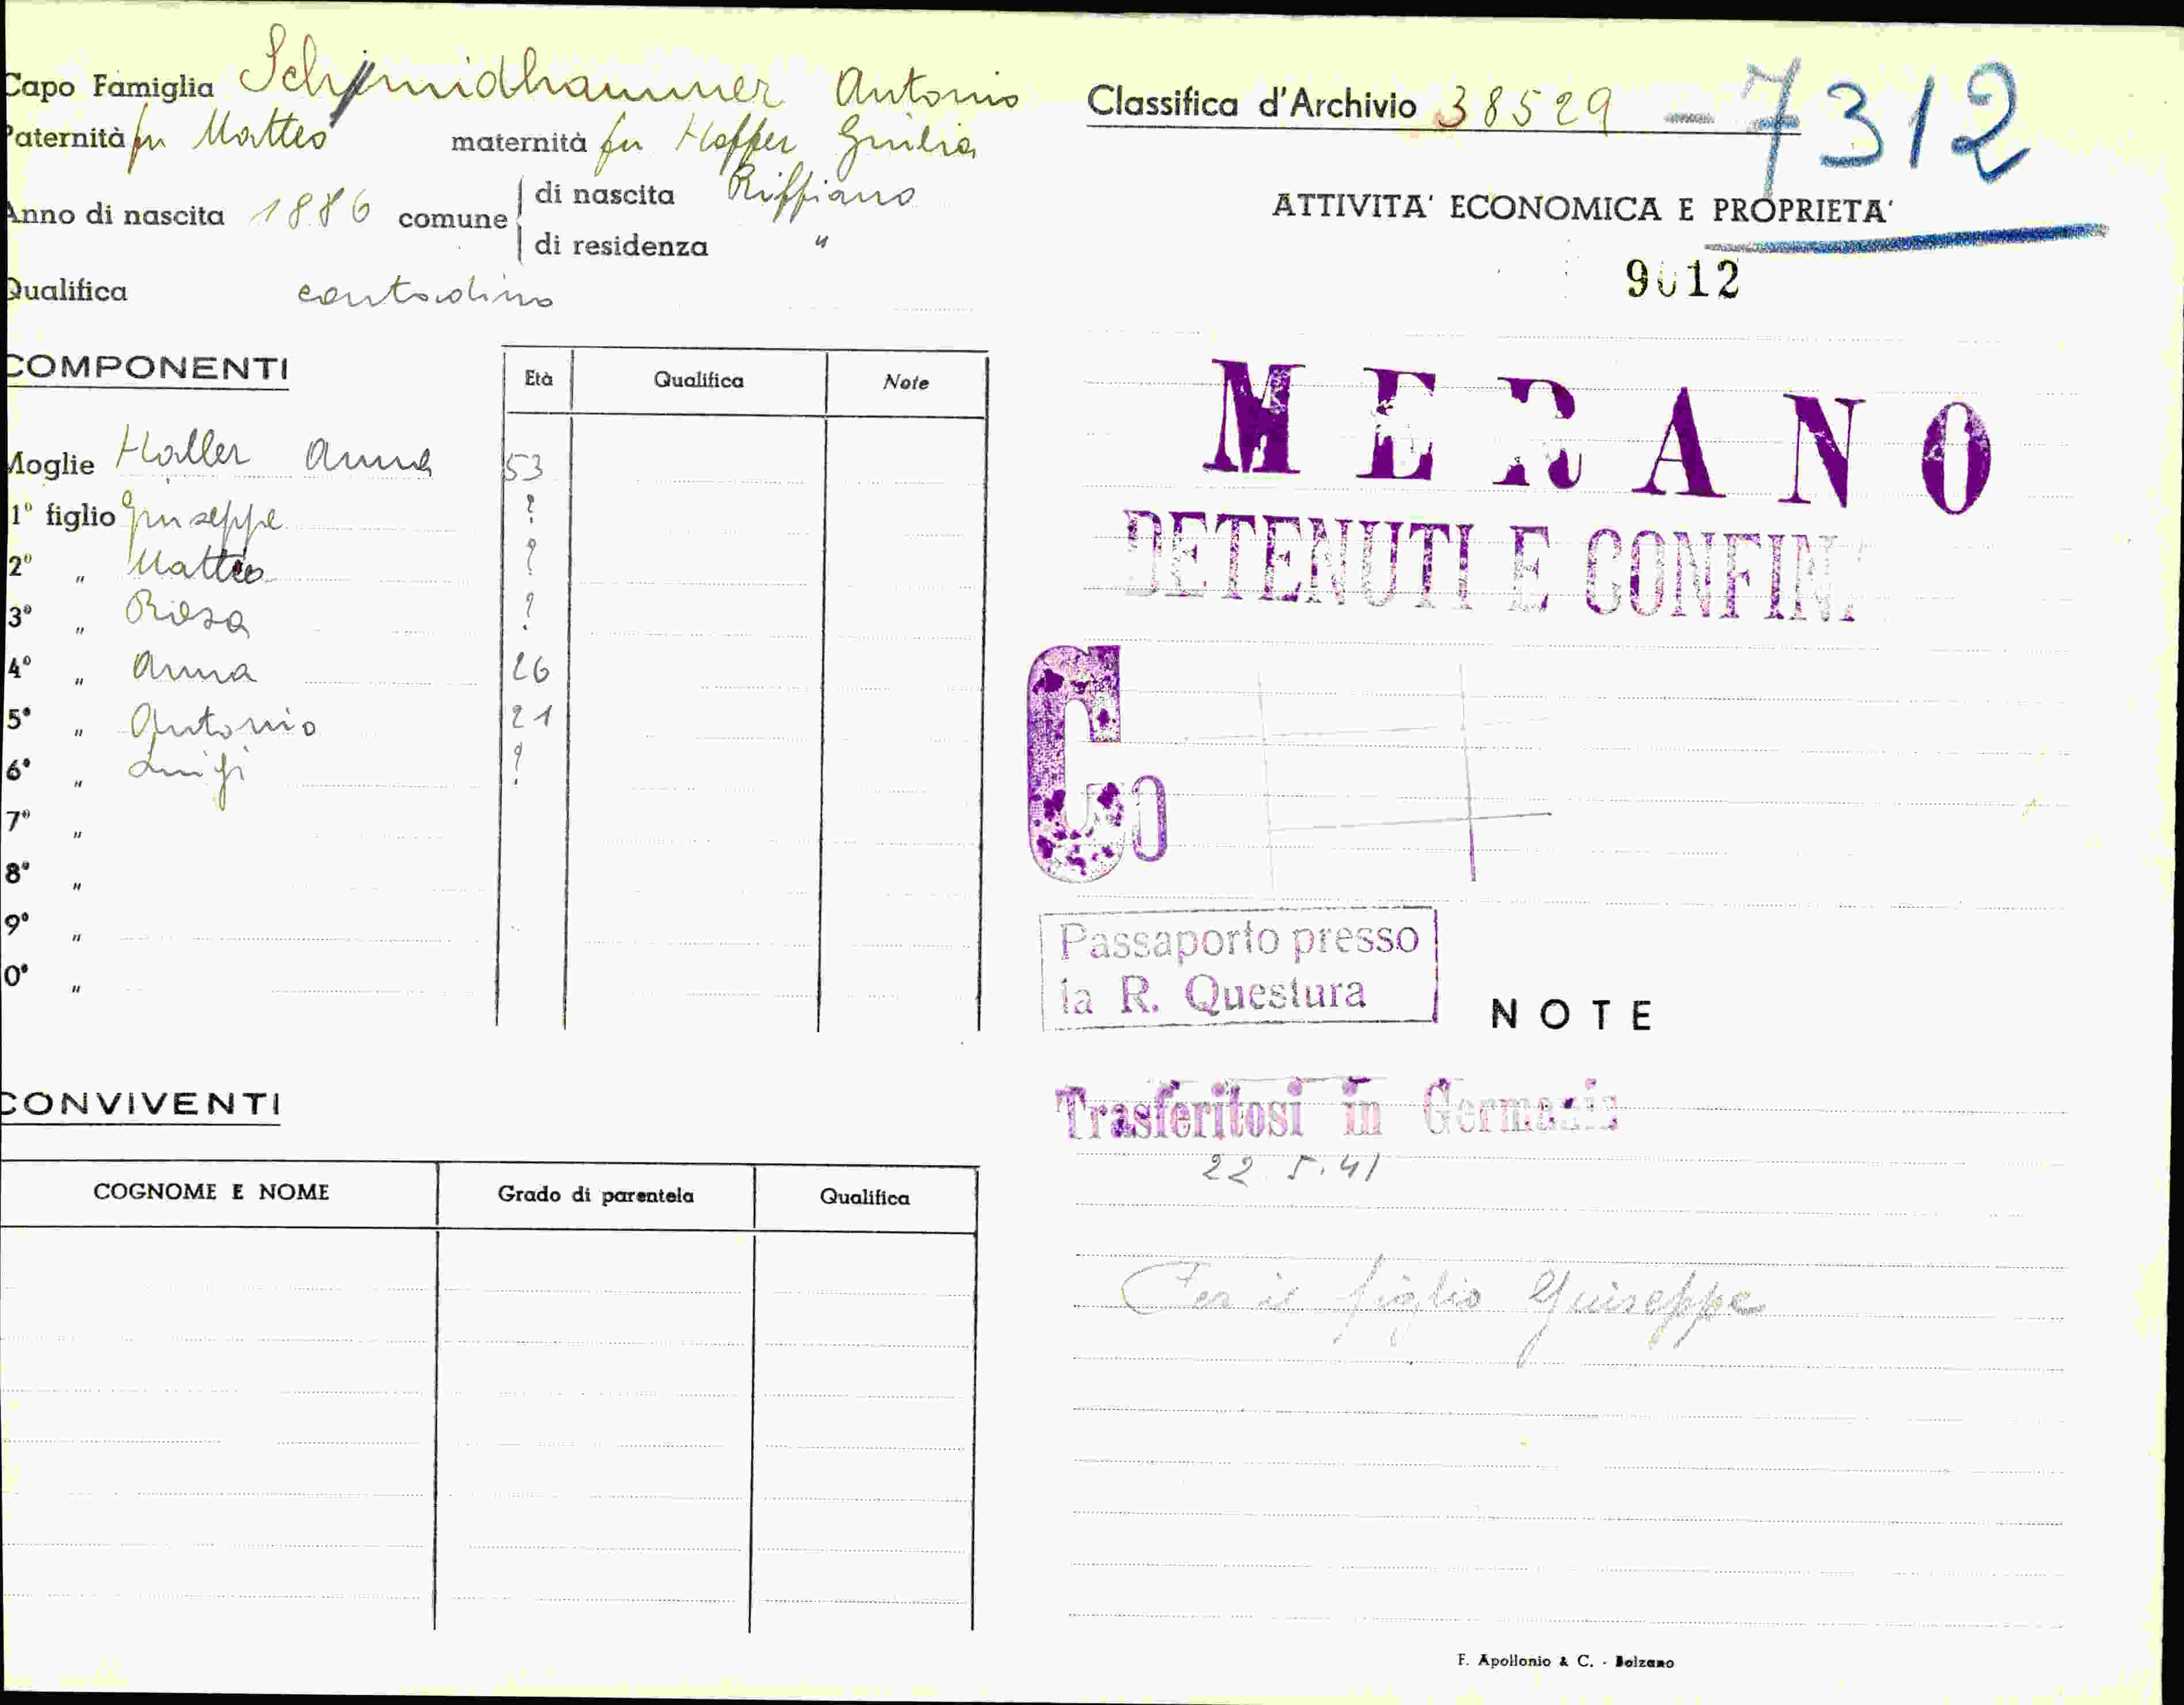 Capo Famiglia Schmidhammer Antonio
Paternità fu Matteo maternità fu Hoffer Giulia
Anno di nascita 1886 comune di nascita Riffiano
di residenza "
Qualifica contadino
COMPONENTI
Età Qualifica Note
Moglie Haller Anna 53
1° figlio Giuseppe ?
2° " Matteo ?
3° " Rosa ?
4° " Anna 26
5° " Antonio 21
6° " Luigi ?
7° "
8° "
9° "
0° "
CONVIVENTI
COGNOME E NOME Grado di parentela Qualifica
Classifica d'Archivio 38529 - 7312
ATTIVITA' ECONOMICA E PROPRIETA'
9012
MERANO
DETENUTI E CONFIN
Co
Passaporto presso
la R. Questura
NOTE
Trasferitosi in Germania
22.5.41
Per il figlio Giuseppe
F. Apollonio & C. - Bolzano